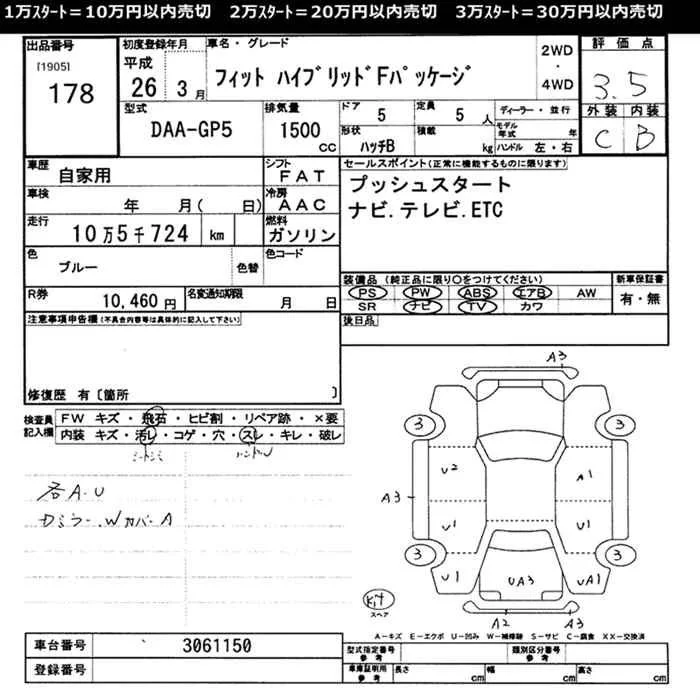 1万ｽﾀｰﾄ＝10万円以内売切　2万ｽﾀｰﾄ＝20万円以内売切　3万ｽﾀｰﾄ＝30万円以内売切
出品番号
[1905]
178
初度登録年月
平成
26年 3月
車名・グレード
フィット ハイブリッドFパッケージ
2WD
・
4WD
評価点
3.5
外装 内装
C B
型式
DAA-GP5
排気量
1500
cc
ドア
5
定員
5 人
形状
ハッチB
積載
kg
ディーラー・並行
モデル年式 年
ハンドル 左・右
車歴
自家用
シフト
FAT
車検
年 月( 日)
冷房
AAC
走行
10万5千724 km
燃料
ガソリン
色
ブルー
色替
色コード
R券
10,460円
名変通知期限
月 日
セールスポイント(正常に機能するものに限ります)
プッシュスタート
ナビ.テレビ.ETC
装備品 (純正品に限り○をつけてください)
PS PW ABS エアB AW
SR ナビ TV カワ
新車保証書
有・無
後日品
注意事項申告欄(不具合内容等は具体的に記入して下さい)
修復歴 有〔箇所 〕
検査員
記入欄
FW キズ・飛石・ヒビ割・リペア跡・×要
内装 キズ・汚レ・コゲ・穴・スレ・キレ・破レ
シートシミ ハンドル
各A.U
カミラー.Wカバー A
A3
3 3
U2 A1
A3
U1 U1
3 3
U1 UA3 UA1
Kit
スペア
A2 A3
A―キズ E―エクボ U―凹み W―補修跡 S―サビ C―腐食 XX―交換済
車台番号
3061150
登録番号
型式指定番号
参考
類別区分番号
参考
車庫証明用
参考
長さ cm 幅 cm 高さ cm